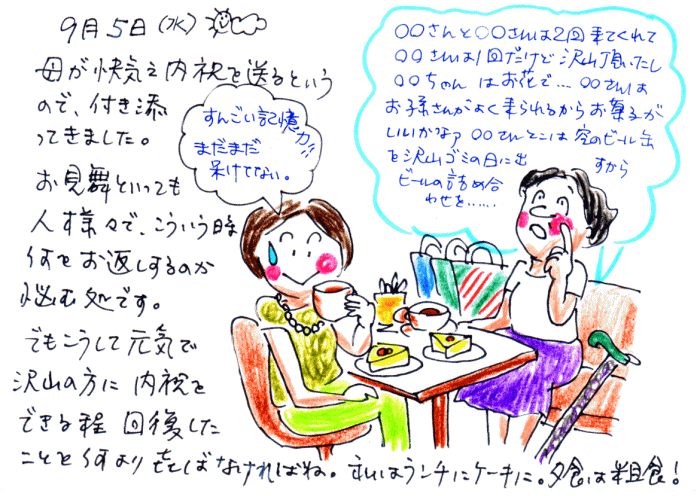 9月5日(水)
母が快気之内祝を送るという
ので、付き添
ってきました。
お見舞といっても
人様々で、こういう時
何をお返しするのか
悩む処です。
でもこうして元気で
沢山の方に内祝を
できる程 回復した
ことを何より喜ばなければね。
ランチにケーキに。夕食は粗食!
すんごい記憶力!!
まだまだ
呆けてない。
〇〇さんと〇〇さんは2回来てくれて
〇〇さんは1回だけど沢山頂いたし
〇〇ちゃんはお花で…〇〇さんは
お子様さんがよく来られるからお菓子が
いいかなァ 〇〇さんとこは空のビール缶
を沢山ゴミの日に出
すから
ビールの詰め合
わせを……